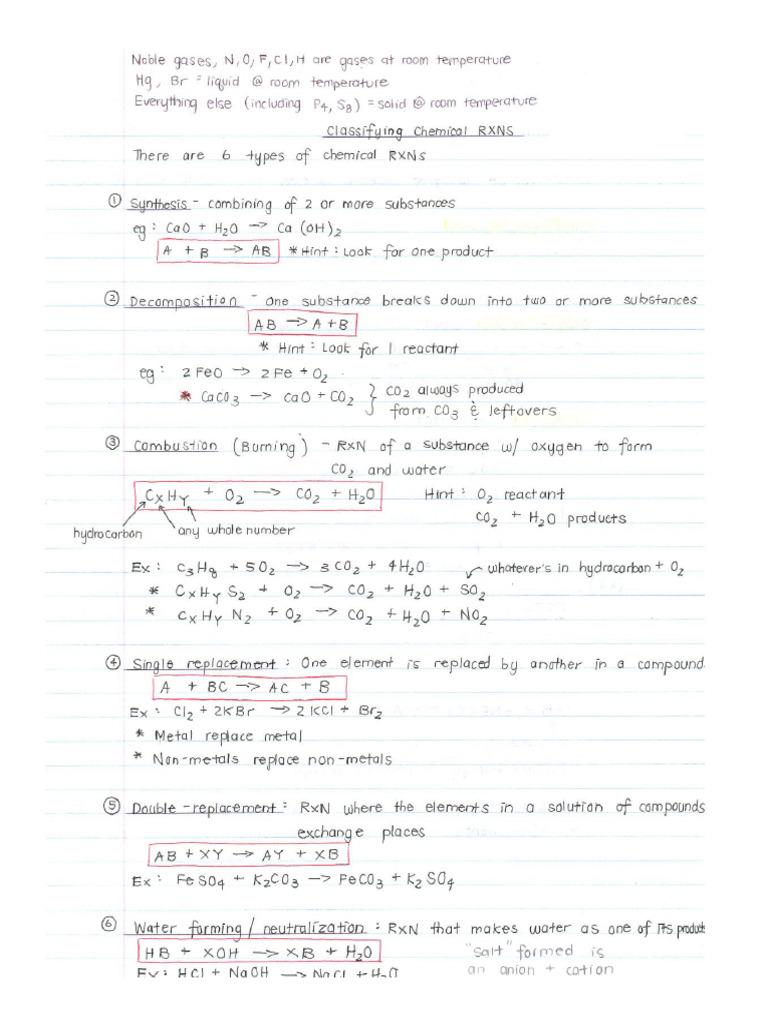 Noble gases, N, O, F, Cl, H are gases at room temperature
Hg, Br = liquid @ room temperature
Everything else (including P₄, S₈) = solid @ room temperature
Classifying Chemical RXNS
There are 6 types of chemical RXNs
① Synthesis - combining of 2 or more substances
eg: CaO + H₂O → Ca(OH)₂
A + B → AB * Hint: Look for one product
② Decomposition - One substance breaks down into two or more substances
AB → A + B
* Hint: Look for 1 reactant
eg: 2 FeO → 2 Fe + O₂
* CaCO₃ → CaO + CO₂ } CO₂ always produced
from CO₃ & leftovers
③ Combustion (Burning) - RXN of a substance w/ oxygen to form
CO₂ and water
CxHy + O₂ → CO₂ + H₂O Hint: O₂ reactant
CO₂ + H₂O products
hydrocarbon any whole number
Ex: C₃H₈ + 5O₂ → 3CO₂ + 4H₂O whaterer's in hydrocarbon + O₂
* CxHy S₂ + O₂ → CO₂ + H₂O + SO₂
* CxHy N₂ + O₂ → CO₂ + H₂O + NO₂
④ Single replacement: One element is replaced by another in a compound
A + BC → AC + B
Ex: Cl₂ + 2KBr → 2KCl + Br₂
* Metal replace metal
* Non-metals replace non-metals
⑤ Double-replacement: RXN where the elements in a solution of compounds
exchange places
AB + XY → AY + XB
Ex: FeSO₄ + K₂CO₃ → FeCO₃ + K₂SO₄
⑥ Water forming/neutralization: RXN that makes water as one of its product
HB + XOH → XB + H₂O "salt" formed is
Ex: HCl + NaOH → NaCl + H₂O an anion + cation